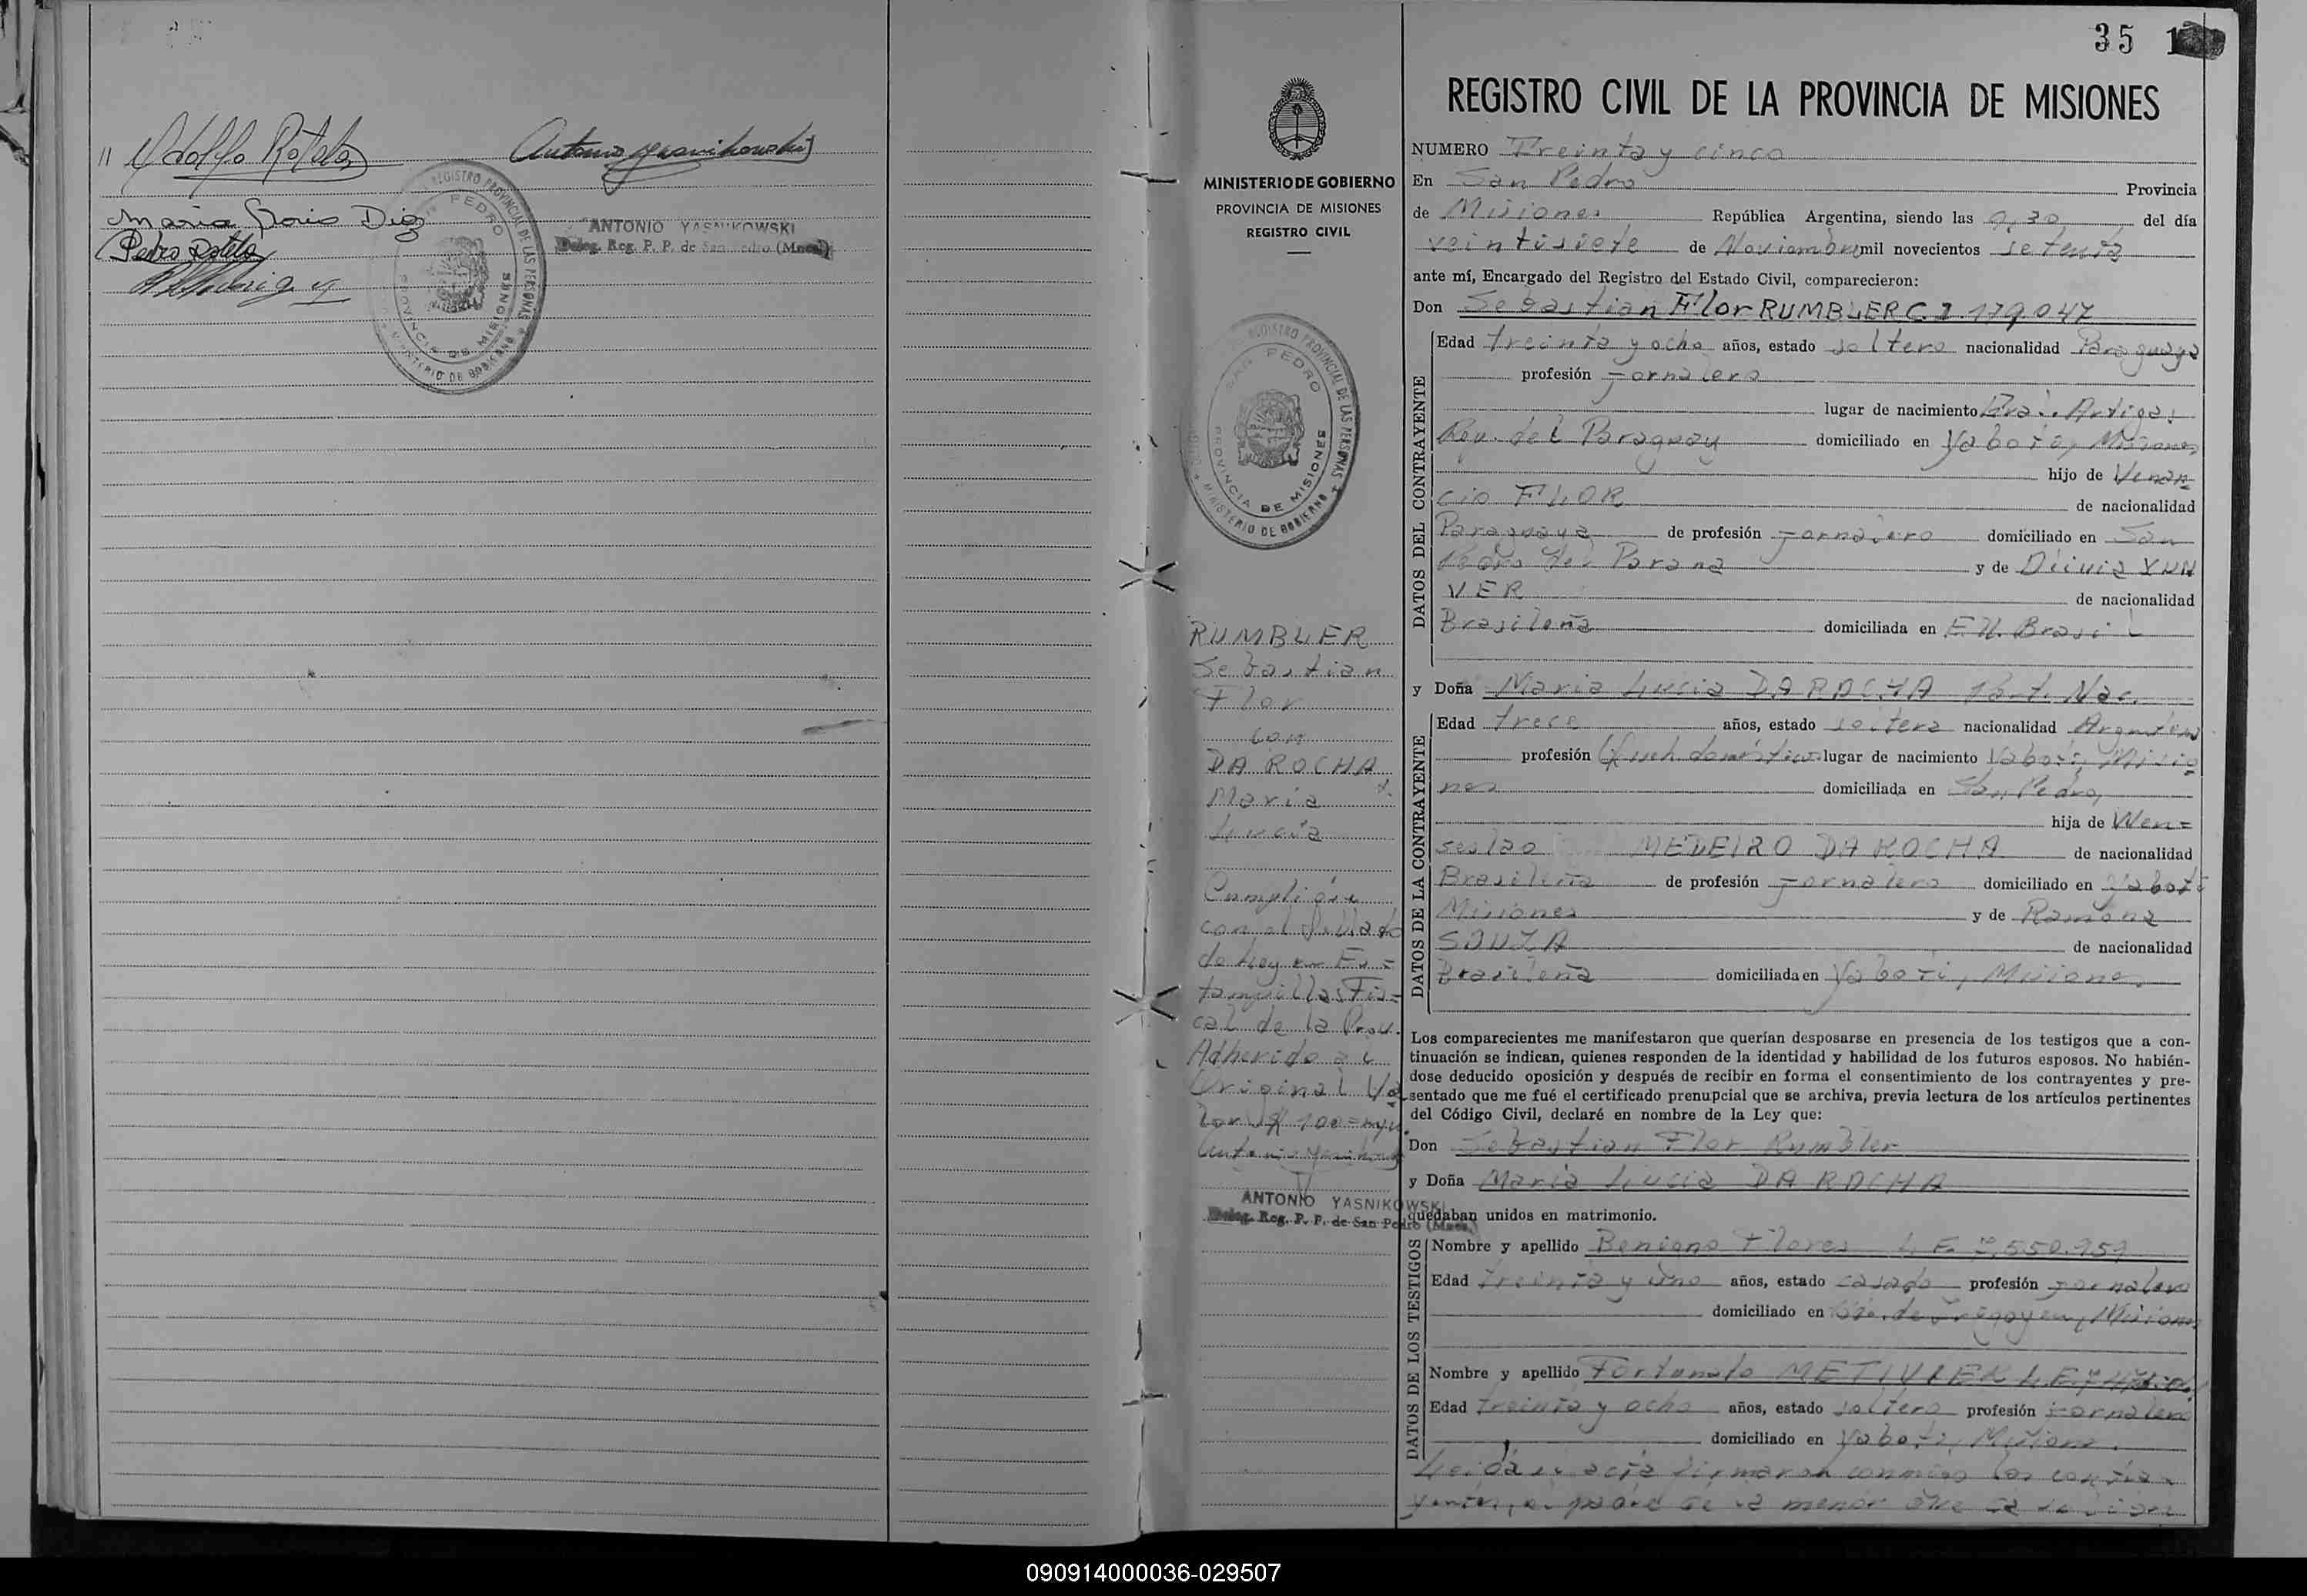 // Adolfo Rotela
Antonio Yasnikowski
REGISTRO PROVINCIAL DE LAS PERSONAS
SAN PEDRO
PROVINCIA DE MISIONES
MINISTERIO DE GOBIERNO
Maria Gloria Diaz
Pedro Rotela
ANTONIO YASNIKOWSKI
Deleg. Reg. P. P. de San Pedro (Mnes)
35
MINISTERIO DE GOBIERNO
PROVINCIA DE MISIONES
REGISTRO CIVIL
REGISTRO PROVINCIAL DE LAS PERSONAS
SAN PEDRO
PROVINCIA DE MISIONES
MINISTERIO DE GOBIERNO
RUMBLER
Sebastian
Flor
con
DA ROCHA
Maria
Lucia
Cumplióse
con el sellado
de Ley en Es=
tampillas Fis=
cal de la Prov.
Adherido al
Original Va
lor $ 100=
Antonio Yasnikowski
ANTONIO YASNIKOWSKI
Deleg. Reg. P. P. de San Pedro (Mnes.)
REGISTRO CIVIL DE LA PROVINCIA DE MISIONES
NUMERO Treinta y cinco
En San Pedro Provincia
de Misiones República Argentina, siendo las 9,30 del día
veintisiete de Noviembre mil novecientos setenta
ante mí, Encargado del Registro del Estado Civil, comparecieron:
Don Sebastian Flor RUMBLER C.I. 179.047
DATOS DEL CONTRAYENTE
Edad treinta y ocho años, estado soltero nacionalidad Paraguaya
profesión Jornalero
lugar de nacimiento Gral. Artigas
Rep. del Paraguay domiciliado en Yabotí, Misiones
hijo de Venan
cio FLOR de nacionalidad
Paraguaya de profesión Jornalero domiciliado en San
Pedro del Parana y de
VER de nacionalidad
Brasileña domiciliada en Brasil
y Doña Maria Lucia DA ROCHA Part. Nac.
DATOS DE LA CONTRAYENTE
Edad trece años, estado soltera nacionalidad Argentina
profesión Queh. domésticos lugar de nacimiento Yabotí, Misio
nes domiciliada en San Pedro,
hija de Wen=
seslao MEDEIRO DA ROCHA de nacionalidad
Brasileña de profesión Jornalero domiciliado en Yabotí
Misiones y de Ramona
SOUZA de nacionalidad
Brasileña domiciliada en Yabotí, Misiones
Los comparecientes me manifestaron que querían desposarse en presencia de los testigos que a con-
tinuación se indican, quienes responden de la identidad y habilidad de los futuros esposos. No habién-
dose deducido oposición y después de recibir en forma el consentimiento de los contrayentes y pre-
sentado que me fué el certificado prenupcial que se archiva, previa lectura de los artículos pertinentes
del Código Civil, declaré en nombre de la Ley que:
Don Sebastian Flor Rumbler
y Doña Maria Lucia DA ROCHA
quedaban unidos en matrimonio.
DATOS DE LOS TESTIGOS
Nombre y apellido Benigno Flores L.E. 7.550.959
Edad treinta y uno años, estado casado profesión jornalero
domiciliado en Bdo. de Irigoyen, Misiones
Nombre y apellido Fortunato METIVIER L.E.
Edad treinta y ocho años, estado soltero profesión jornalero
domiciliado en Yabotí, Misiones.
Leida el acta firmaron conmigo los contra
yentes, el padre de la menor que
090914000036-029507